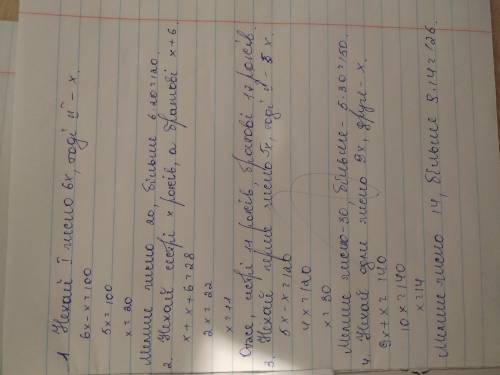 1. Нехай I число 6x, тоді II - x.
6x-x=100
5x=100
x=20
Менше число 20, більше 6·20=120.
2. Нехай сестрі x років, а братові x+6
x+x+6=28
2x=22
x=11
Отже, сестрі 11 років, братові 17 років.
3. Нехай перше число 5x, тоді II - x.
5x-x=120
4x=120
x=30
Менше число-30, більше-5·30=150.
4. Нехай одне число 9x, друге-x.
9x+x=140
10x=140
x=14
Менше число 14, більше 9·14=126.